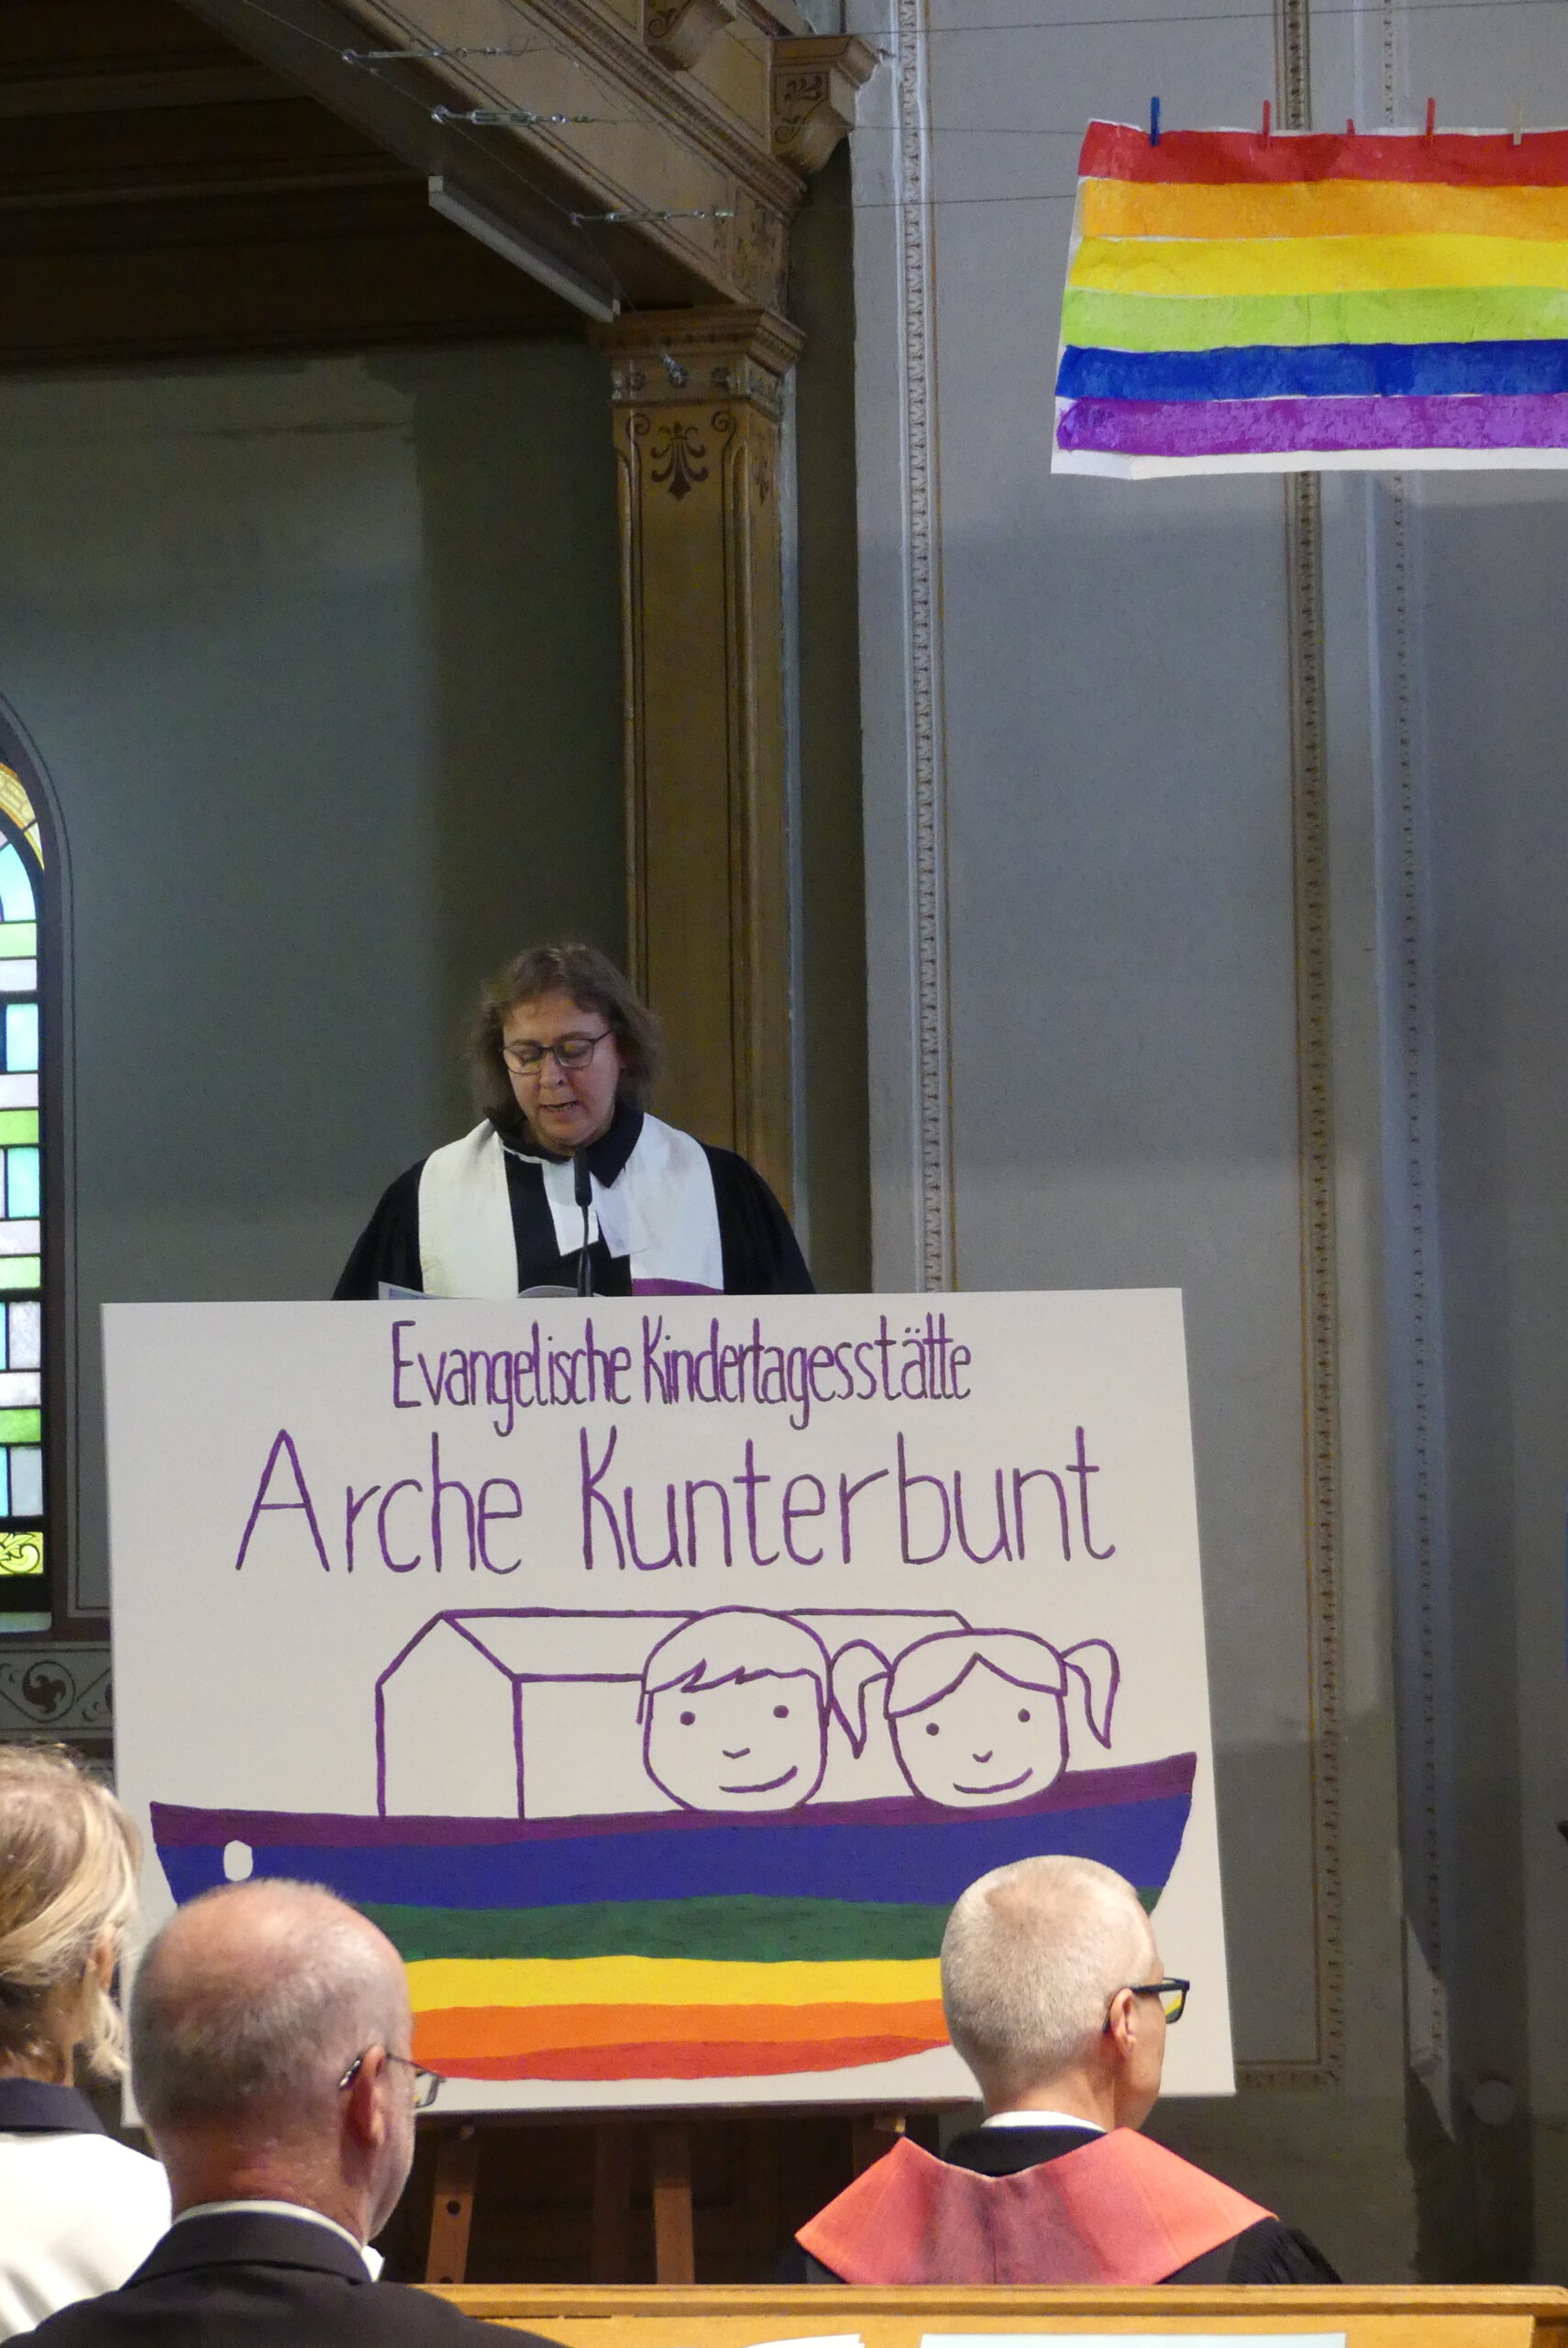 Evangelische Kindertagesstätte
Arche Kunterbunt